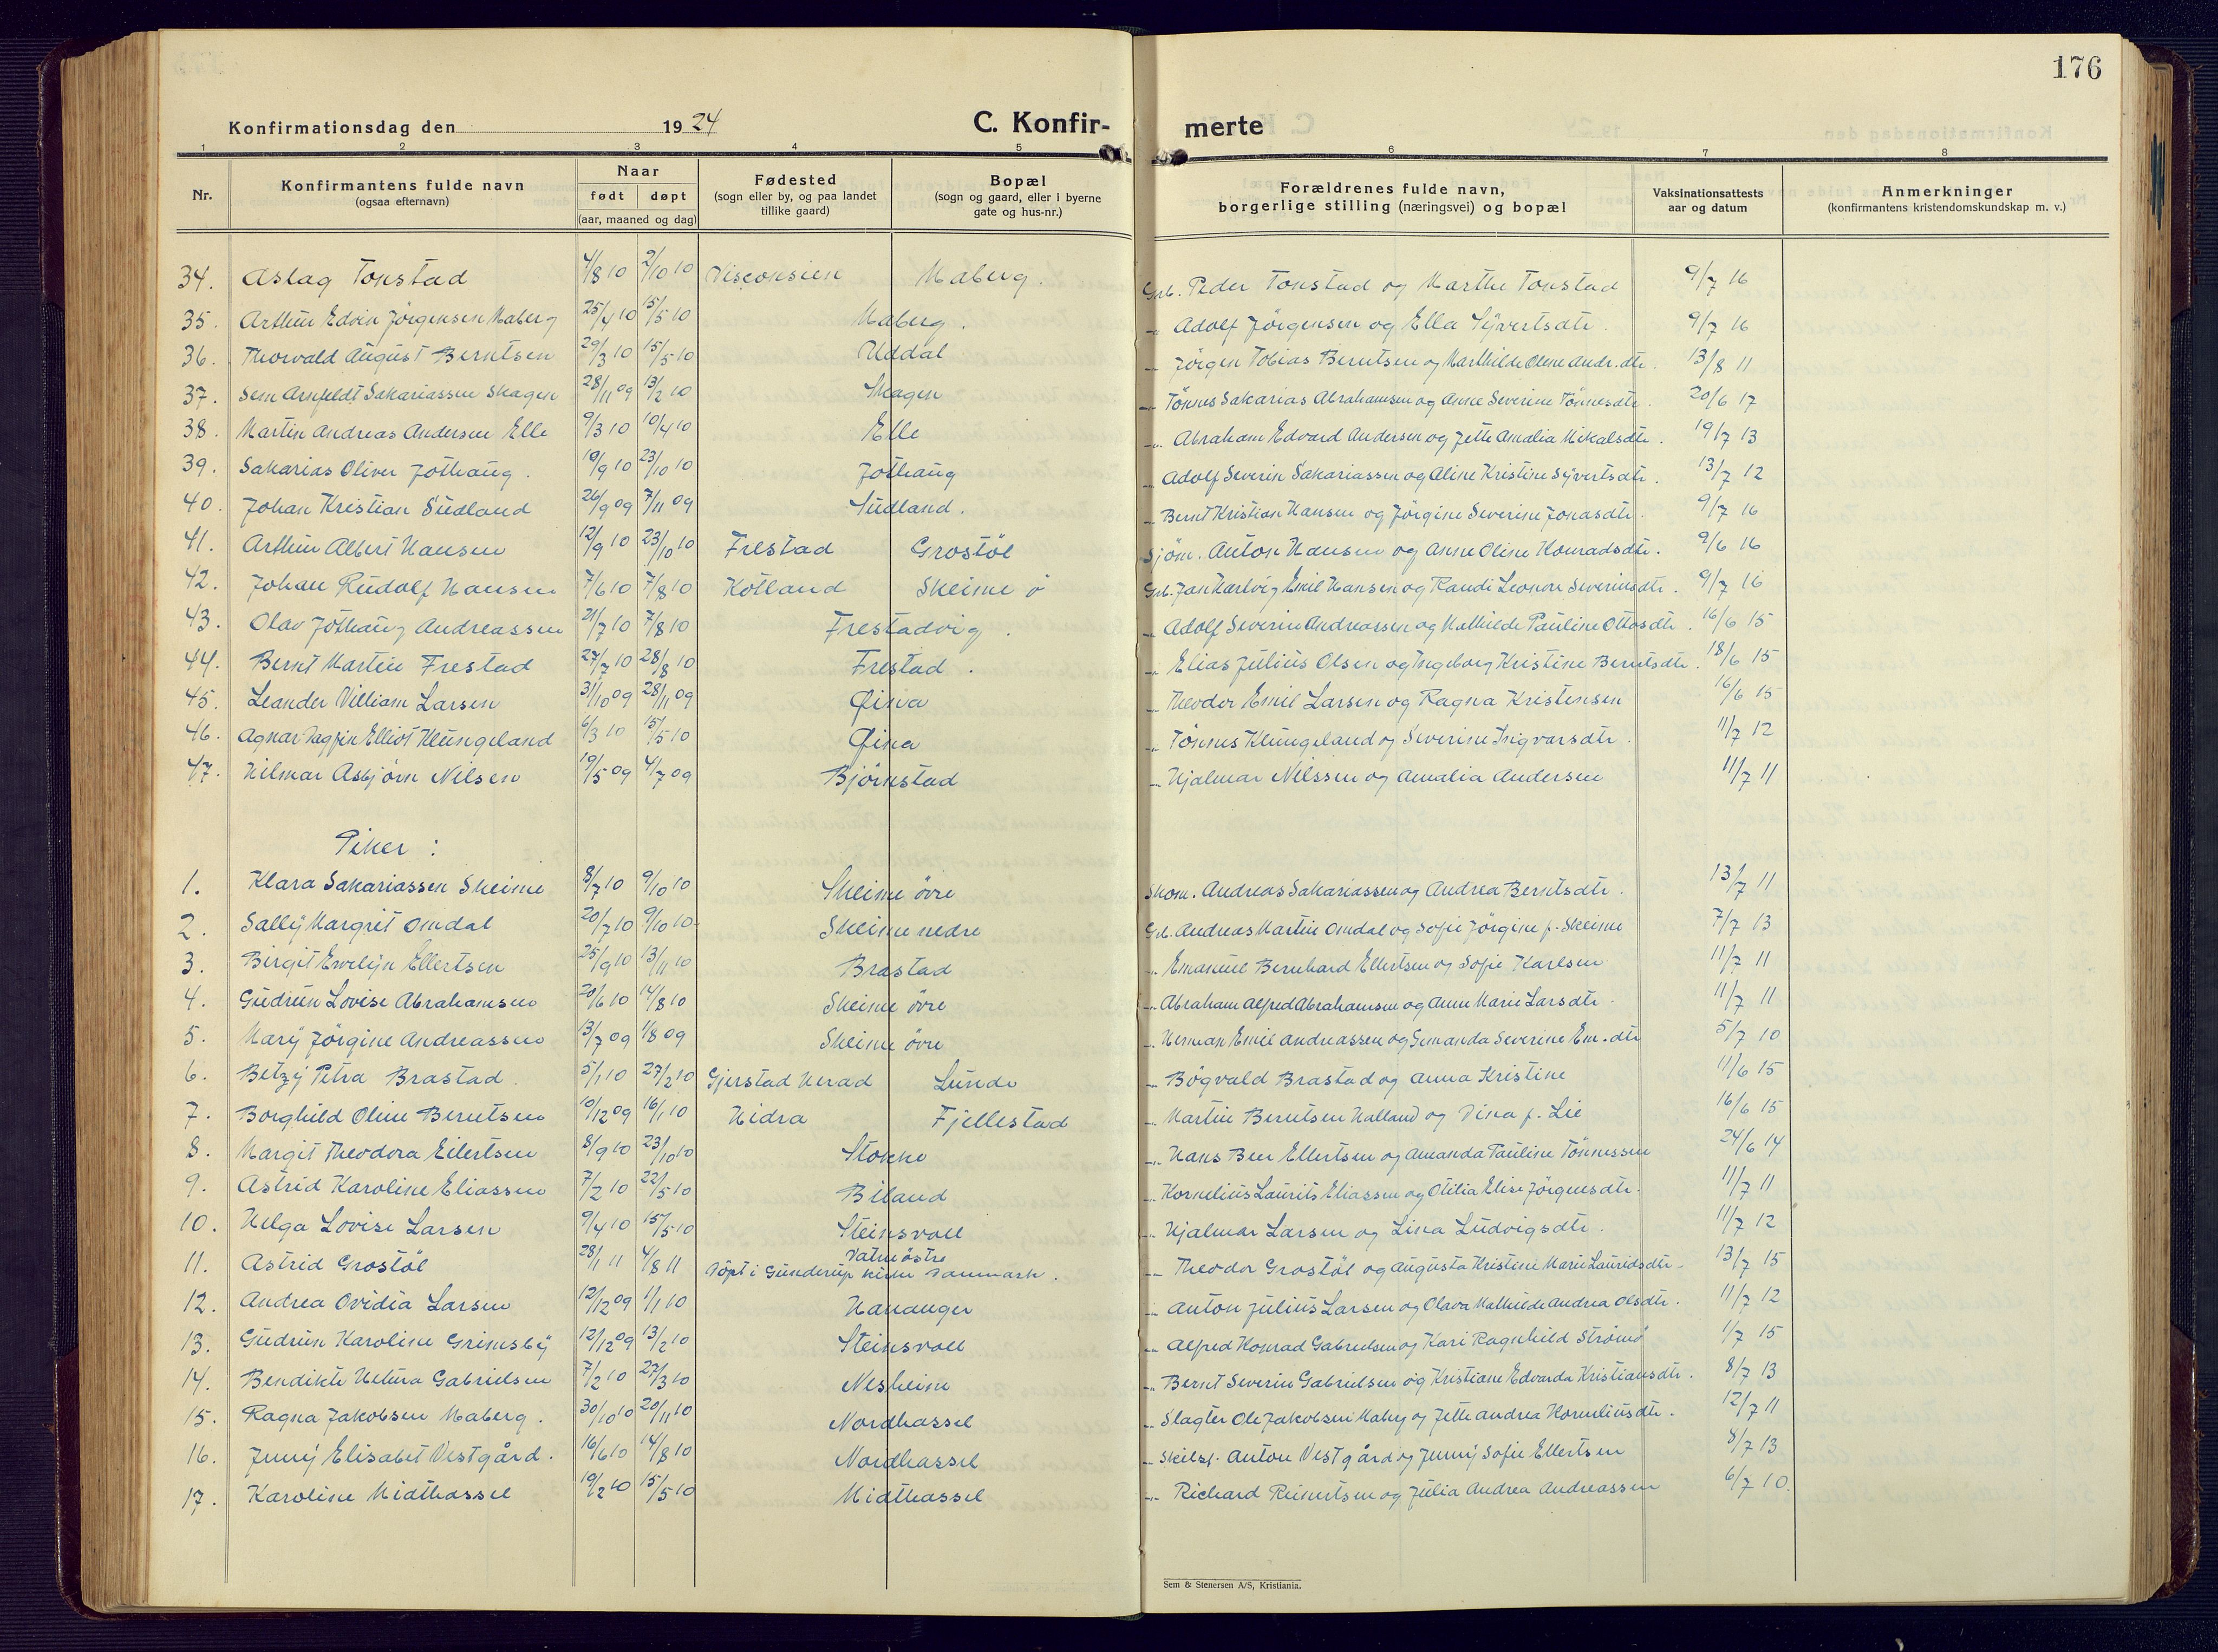 176
Konfirmationsdag den 1924 C. Konfir- merte
1 2 3 4 5 6 7 8
Nr. Konfirmantens fulde navn (ogsaa efternavn) Naar født døpt (aar, maaned og dag) Fødested (sogn eller by, og paa landet tillike gaard) Bopæl (sogn og gaard, eller i byerne gate og hus-nr.) Forældrenes fulde navn, borgerlige stilling (næringsvei) og bopæl Vaksinationsattests aar og datum Anmerkninger (konfirmantens kristendomskundskap m. v.)
34. Aslag Tonstad 4/8 10 2/10 10 Visconsien Maberg. Grb. Peder Tonstad og Marthe Tonstad 9/7 16
35. Arthur Edvin Jörgensen Maberg 25/4 10 15/5 10 Maberg. -"- Adolf Jörgensen og Ella Syvertsdtr. 9/7 16
36. Thorvald August Berntsen 29/3 10 15/5 10 Uddal -"- Jörgen Tobias Berntsen og Marthilde Olene Andr.dtr. 13/8 11
37. Sem Arnfeldt Sakariassen Skagen 28/11 09 13/2 10 Skagen -"- Tönnes Sakarias Abrahamsen og Anne Severine Tönnesdtr. 20/6 17
38. Martin Andreas Andersen Elle 9/3 10 10/4 10 Elle -"- Abraham Edvard Andersen og Jette Amalia Mikalsdtr. 19/7 13
39. Sakarias Oliver Jöthaug. 19/9 10 23/10 10 Jöthaug -"- Adolf Severin Sakariassen og Aline Kristine Syvertsdtr. 13/7 12
40. Johan Kristian Sudland 26/9 09 7/11 09 Sudland. -"- Bernt Kristian Hansen og Jörgine Severine Jonasdtr. 9/7 16
41. Arthur Albert Hansen 12/9 10 23/10 10 Frestad Grostöl Sjöm. Anton Hansen og Anne Oline Konradsdtr. 9/6 16
42. Johan Rudolf Hansen 7/6 10 7/8 10 Kotland Skeime ö Grb. Jan Hartvig Emil Hansen og Randi Leonore Severinsdtr. 9/7 16
43. Olav Jöthaug Andreassen 21/7 10 7/8 10 Frestadvig. -"- Adolf Severin Andreassen og Mathilde Pauline Ottosdtr. 16/6 15
44. Bernt Martin Frestad 27/7 10 28/8 10 Frestad. -"- Elias Julius Olsen og Ingeborg Kristine Berntsdtr. 18/6 15
45. Leander Villiam Larsen 31/10 09 28/11 09 Öina -"- Theodor Emil Larsen og Ragna Kristensen 16/6 15
46. Agnar Dagfin Elliot Klungeland 6/3 10 15/5 10 Öina -"- Tönnes Klungeland og Severine Ingvarsdtr. 11/7 12
47. Hilmar Asbjörn Nilsen 19/5 09 4/7 09 Björnstad -"- Hjalmar Nilssen og Amalia Andersen 11/7 11
Piker:
1. Klara Sakariassen Skeime 8/7 10 9/10 10 Skeime övre Skom. Andreas Sakariassen og Andrea Berntsdtr. 13/7 11
2. Sally Margrit Omdal 20/7 10 9/10 10 Skeime nedre Grb. Andreas Martin Omdal og Sofie Jörgine f. Skeime 7/7 13
3. Birgit Evelyn Ellertsen 25/9 10 13/11 10 Brastad -"- Emanuel Bernhard Ellertsen og Sofie Karlsen 11/7 11
4. Gudrun Lovise Abrahamsen 20/6 10 14/8 10 Skeime övre -"- Abraham Alfred Abrahamsen og Anne Marie Larsdtr. 11/7 11
5. Mary Jörgine Andreassen 13/7 09 1/8 09 Skeime övre -"- Herman Emil Andreassen og Semanda Severine Em.dtr 5/7 10
6. Betzy Petra Brastad. 5/1 10 27/2 10 Gjerstad Herad Lunde -"- Bögvald Brastad og Anna Kristine 11/6 15
7. Borghild Oline Berntsen 10/12 09 16/1 10 Hidra Fjellestad -"- Martin Berntsen Halland og Dina f. Lie 16/6 15
8. Margit Theodora Eilertsen 8/9 10 23/10 10 Stokke -"- Hans Beer Ellertsen og Amanda Pauline Tönnessen 24/6 14
9. Astrid Karoline Eliassen 7/2 10 22/5 10 Biland -"- Kornelius Laurits Eliassen og Otilia Elise Jörgensdtr. 11/7 11
10. Helga Lovise Larsen 9/4 10 15/5 10 Steinsvoll -"- Hjalmar Larsen og Lina Ludvigsdtr. 11/7 12
11. Astrid Grostöl 28/1 11 4/8 11 Vatne östre Döpt i Gunderup kirke Danmark. -"- Theodor Grostöl og Augusta Kristine Marie Lauridsdtr. 13/7 15
12. Andrea Ovidia Larsen 12/12 09 1/1 10 Hananger -"- Anton Julius Larsen og Olava Mathilde Andrea Olsdtr. 11/7 12
13. Gudrun Karoline Grimsby 12/12 09 13/2 10 Steinsvoll -"- Alfred Konrad Gabrielsen og Kari Ragnhild Strömö 1/7 15
14. Bendikte Helena Gabrielsen 7/2 10 27/3 10 Nesheim -"- Bernt Severin Gabrielsen og Kristiane Edvarda Kristiansdtr. 8/7 13
15. Ragna Jakobsen Maberg. 30/10 10 20/11 10 Nordhassel -"- Slagter Ole Jakobsen Maberg og Jette Andrea Korneliusdtr. 12/7 11
16. Jenny Elisabet Vestgård. 16/6 10 14/8 10 Nordhassel -"- Skilsf. Anton Vestgård og Jenny Sofie Ellertsen 8/7 13
17. Karoline Midthassel 19/2 10 15/5 10 Midthassel -"- Richard Reinertsen og Julia Andrea Andreassen 6/7 10.
Sem & Stenersen A/S, Kristiania.